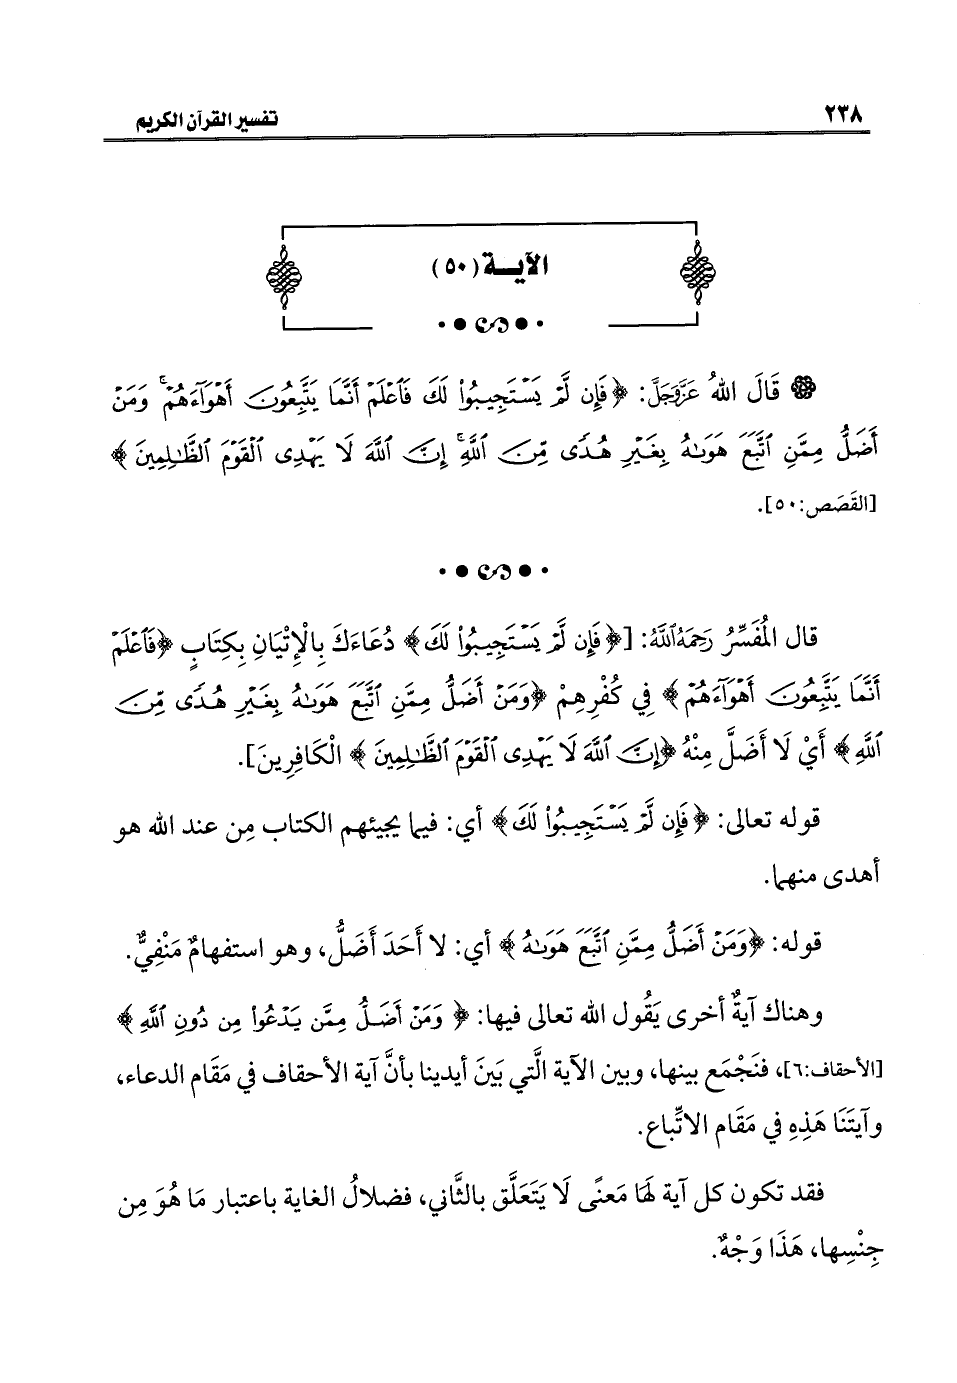 ٢٣٨
تفسير القرآن الكريم
الآيــة (٥٠)
قَالَ اللهُ عَزَّوَجَلَّ: ﴿فَإِن لَّمْ يَسْتَجِيبُوا۟ لَكَ فَٱعْلَمْ أَنَّمَا يَتَّبِعُونَ أَهْوَآءَهُمْ ۚ وَمَنْ
أَضَلُّ مِمَّنِ ٱتَّبَعَ هَوَىٰهُ بِغَيْرِ هُدًى مِّنَ ٱللَّهِ ۚ إِنَّ ٱللَّهَ لَا يَهْدِى ٱلْقَوْمَ ٱلظَّـٰلِمِينَ﴾
[القَصَص:٥٠].
قال المُفَسِّرُ رَحِمَهُ اللَّهُ: [﴿فَإِن لَّمْ يَسْتَجِيبُوا۟ لَكَ﴾ دُعَاءَكَ بِالْإِتْيَانِ بِكِتَابٍ ﴿فَٱعْلَمْ
أَنَّمَا يَتَّبِعُونَ أَهْوَآءَهُمْ﴾ فِي كُفْرِهِمْ ﴿وَمَنْ أَضَلُّ مِمَّنِ ٱتَّبَعَ هَوَىٰهُ بِغَيْرِ هُدًى مِّنَ
ٱللَّهِ﴾ أَيْ لَا أَضَلَّ مِنْهُ ﴿إِنَّ ٱللَّهَ لَا يَهْدِى ٱلْقَوْمَ ٱلظَّـٰلِمِينَ﴾ الْكَافِرِينَ].
قوله تعالى: ﴿فَإِن لَّمْ يَسْتَجِيبُوا۟ لَكَ﴾ أي: فيما يجيئهم الكتاب مِن عند الله هو
أهدى منهما.
قوله: ﴿وَمَنْ أَضَلُّ مِمَّنِ ٱتَّبَعَ هَوَىٰهُ﴾ أي: لا أَحَدَ أَضَلُّ، وهو استفهامٌ مَنْفِيٌّ.
وهناك آيةٌ أخرى يَقُول الله تعالى فيها: ﴿وَمَنْ أَضَلُّ مِمَّن يَدْعُوا۟ مِن دُونِ ٱللَّهِ﴾
[الأحقاف:٦]، فنَجْمَع بينها، وبين الآية الَّتي بَينَ أيدينا بأنَّ آية الأحقاف في مَقَام الدعاء،
وآيتَنَا هَذِهِ فِي مَقَام الاتِّباع.
فقد تكون كل آية لهَا مَعنًى لَا يَتَعَلَّق بالثَّاني، فضلالُ الغاية باعتبار مَا هُوَ مِن
جِنْسِها، هَذَا وَجْهٌ.